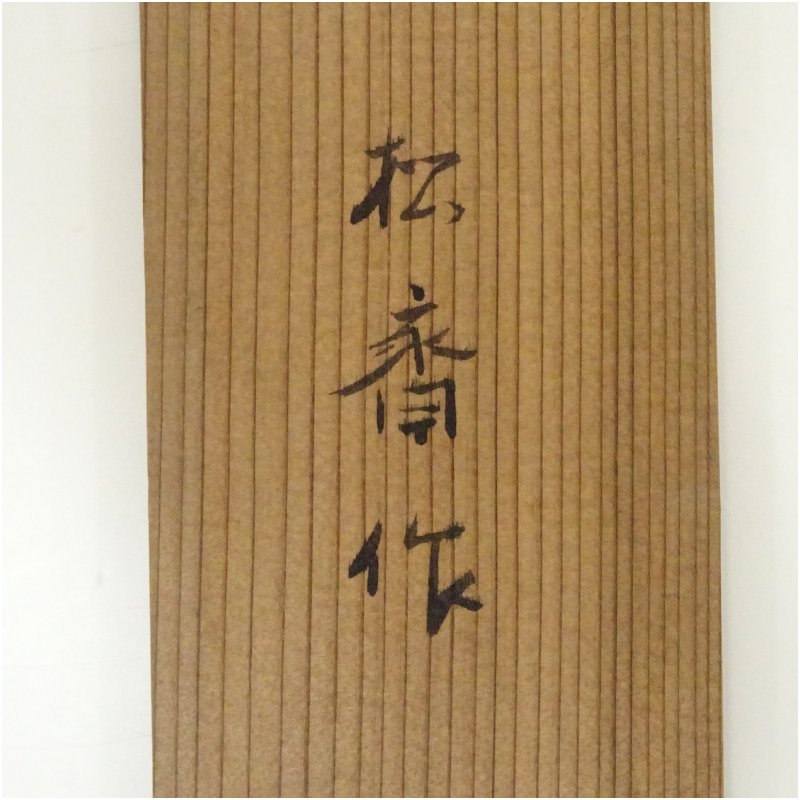 松斎作